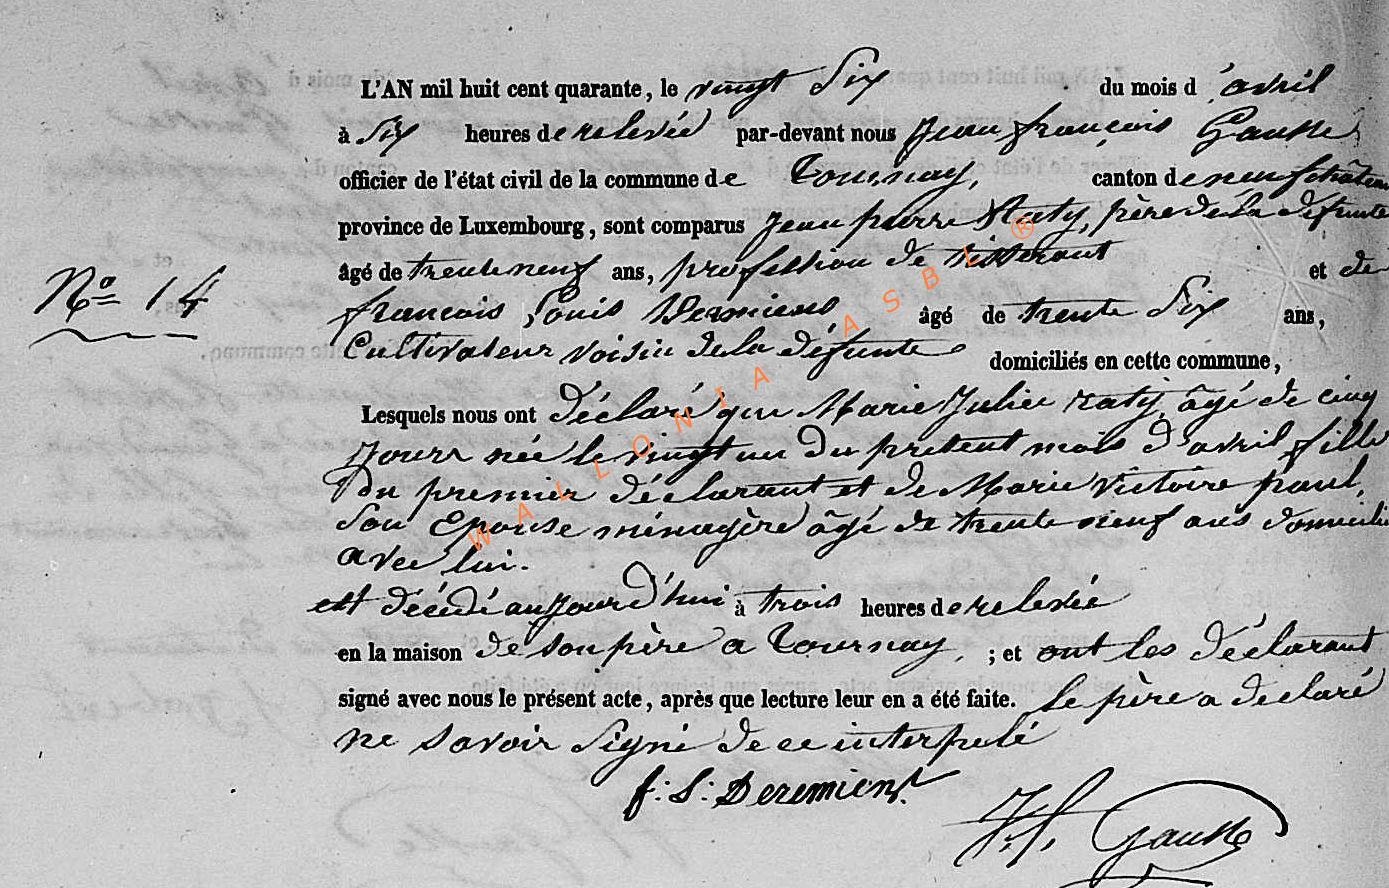 L'AN mil huit cent quarante, le vingt Six du mois d'avril
à Six heures de relevée par-devant nous Jean françois Gausse
officier de l'état civil de la commune de Tournay, canton de neufchâteau
province de Luxembourg, sont comparus Jean pierre Raty, père de la défunte
âgé de trente neuf ans, profession de et de
Nº 14
françois Louis Deremiens âgé de trente Six ans,
Cultivateur voisin de la défunte domiciliés en cette commune,
Lesquels nous ont déclaré que Marie Julie raty, âgé de cinq
Jours née le vingt un du present mois d'avril fille
Du premier déclarant et de Marie Victoire paul,
Son Epouse ménagère âgé de trente neuf ans domicilié
avec lui.
est décédé aujourd'hui à trois heures de relevée
en la maison de son père a Tournay, ; et ont les déclarant
signé avec nous le présent acte, après que lecture leur en a été faite. Le père a declaré
ne savoir Signé de ce interpelé
f: L: Deremiens.
J. f. Gausse
WALLONIA ASBL ®